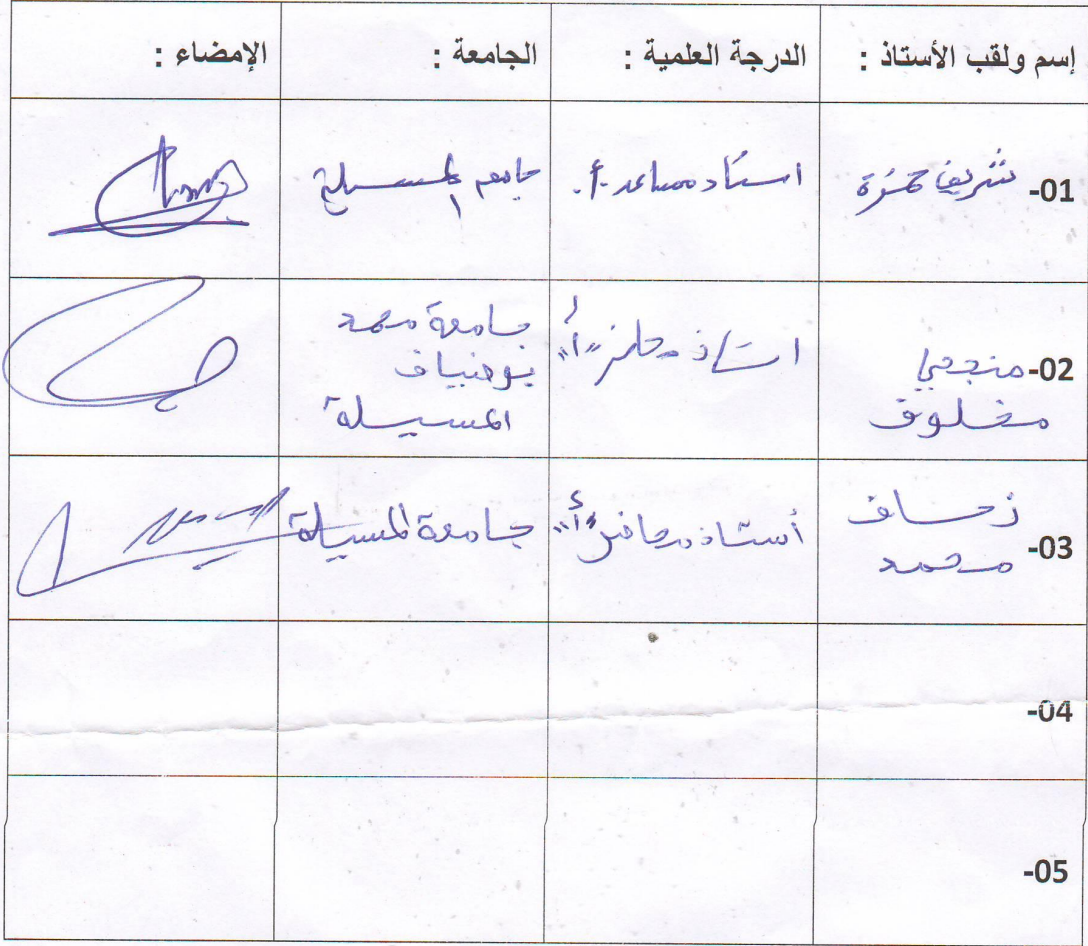 إسم ولقب الأستاذ : الدرجة العلمية : الجامعة : الإمضاء :
01- شريف حمزة استاذ مساعد أ. جامعة المسيلة
02- منجحي مخلوف استاذ محاضر "أ" جامعة محمد بوضياف المسيلة
03- زحاف محمد أستاذ محاضر "أ" جامعة المسيلة
04-
05-